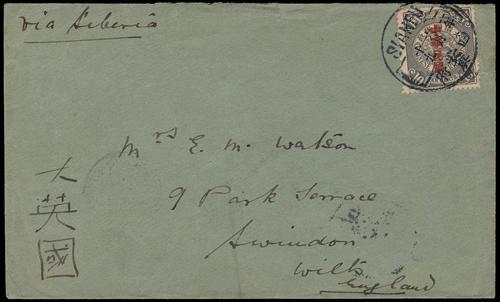 via Siberia
SIANFU
大英國
Mrs E. M. Watson
9 Park Terrace
Swindon
Wilts
England